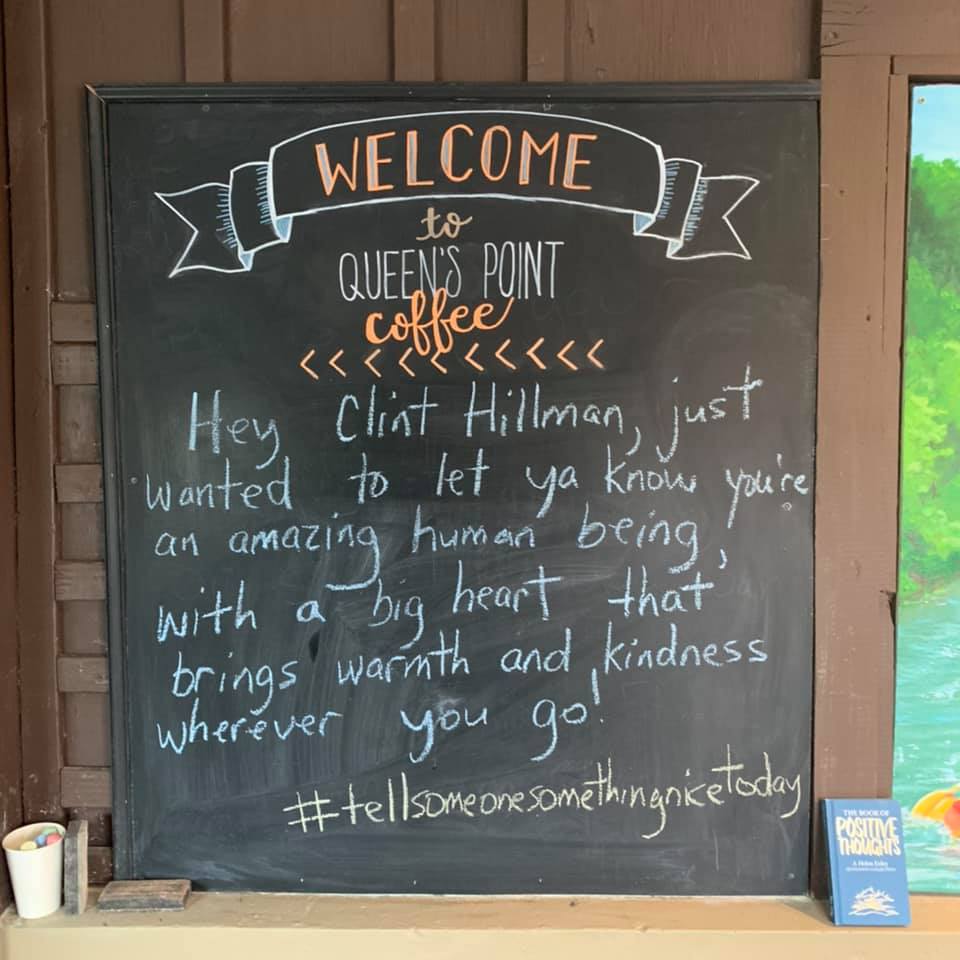 WELCOME
to
QUEEN'S POINT
coffee
<<<<<<<<<<
Hey Clint Hillman, just
wanted to let ya know you're
an amazing human being,
with a big heart that
brings warmth and kindness
wherever you go!
#tellsomeonesomethingniceToday
THE BOOK OF
POSITIVE
THOUGHTS
A Helen Exley